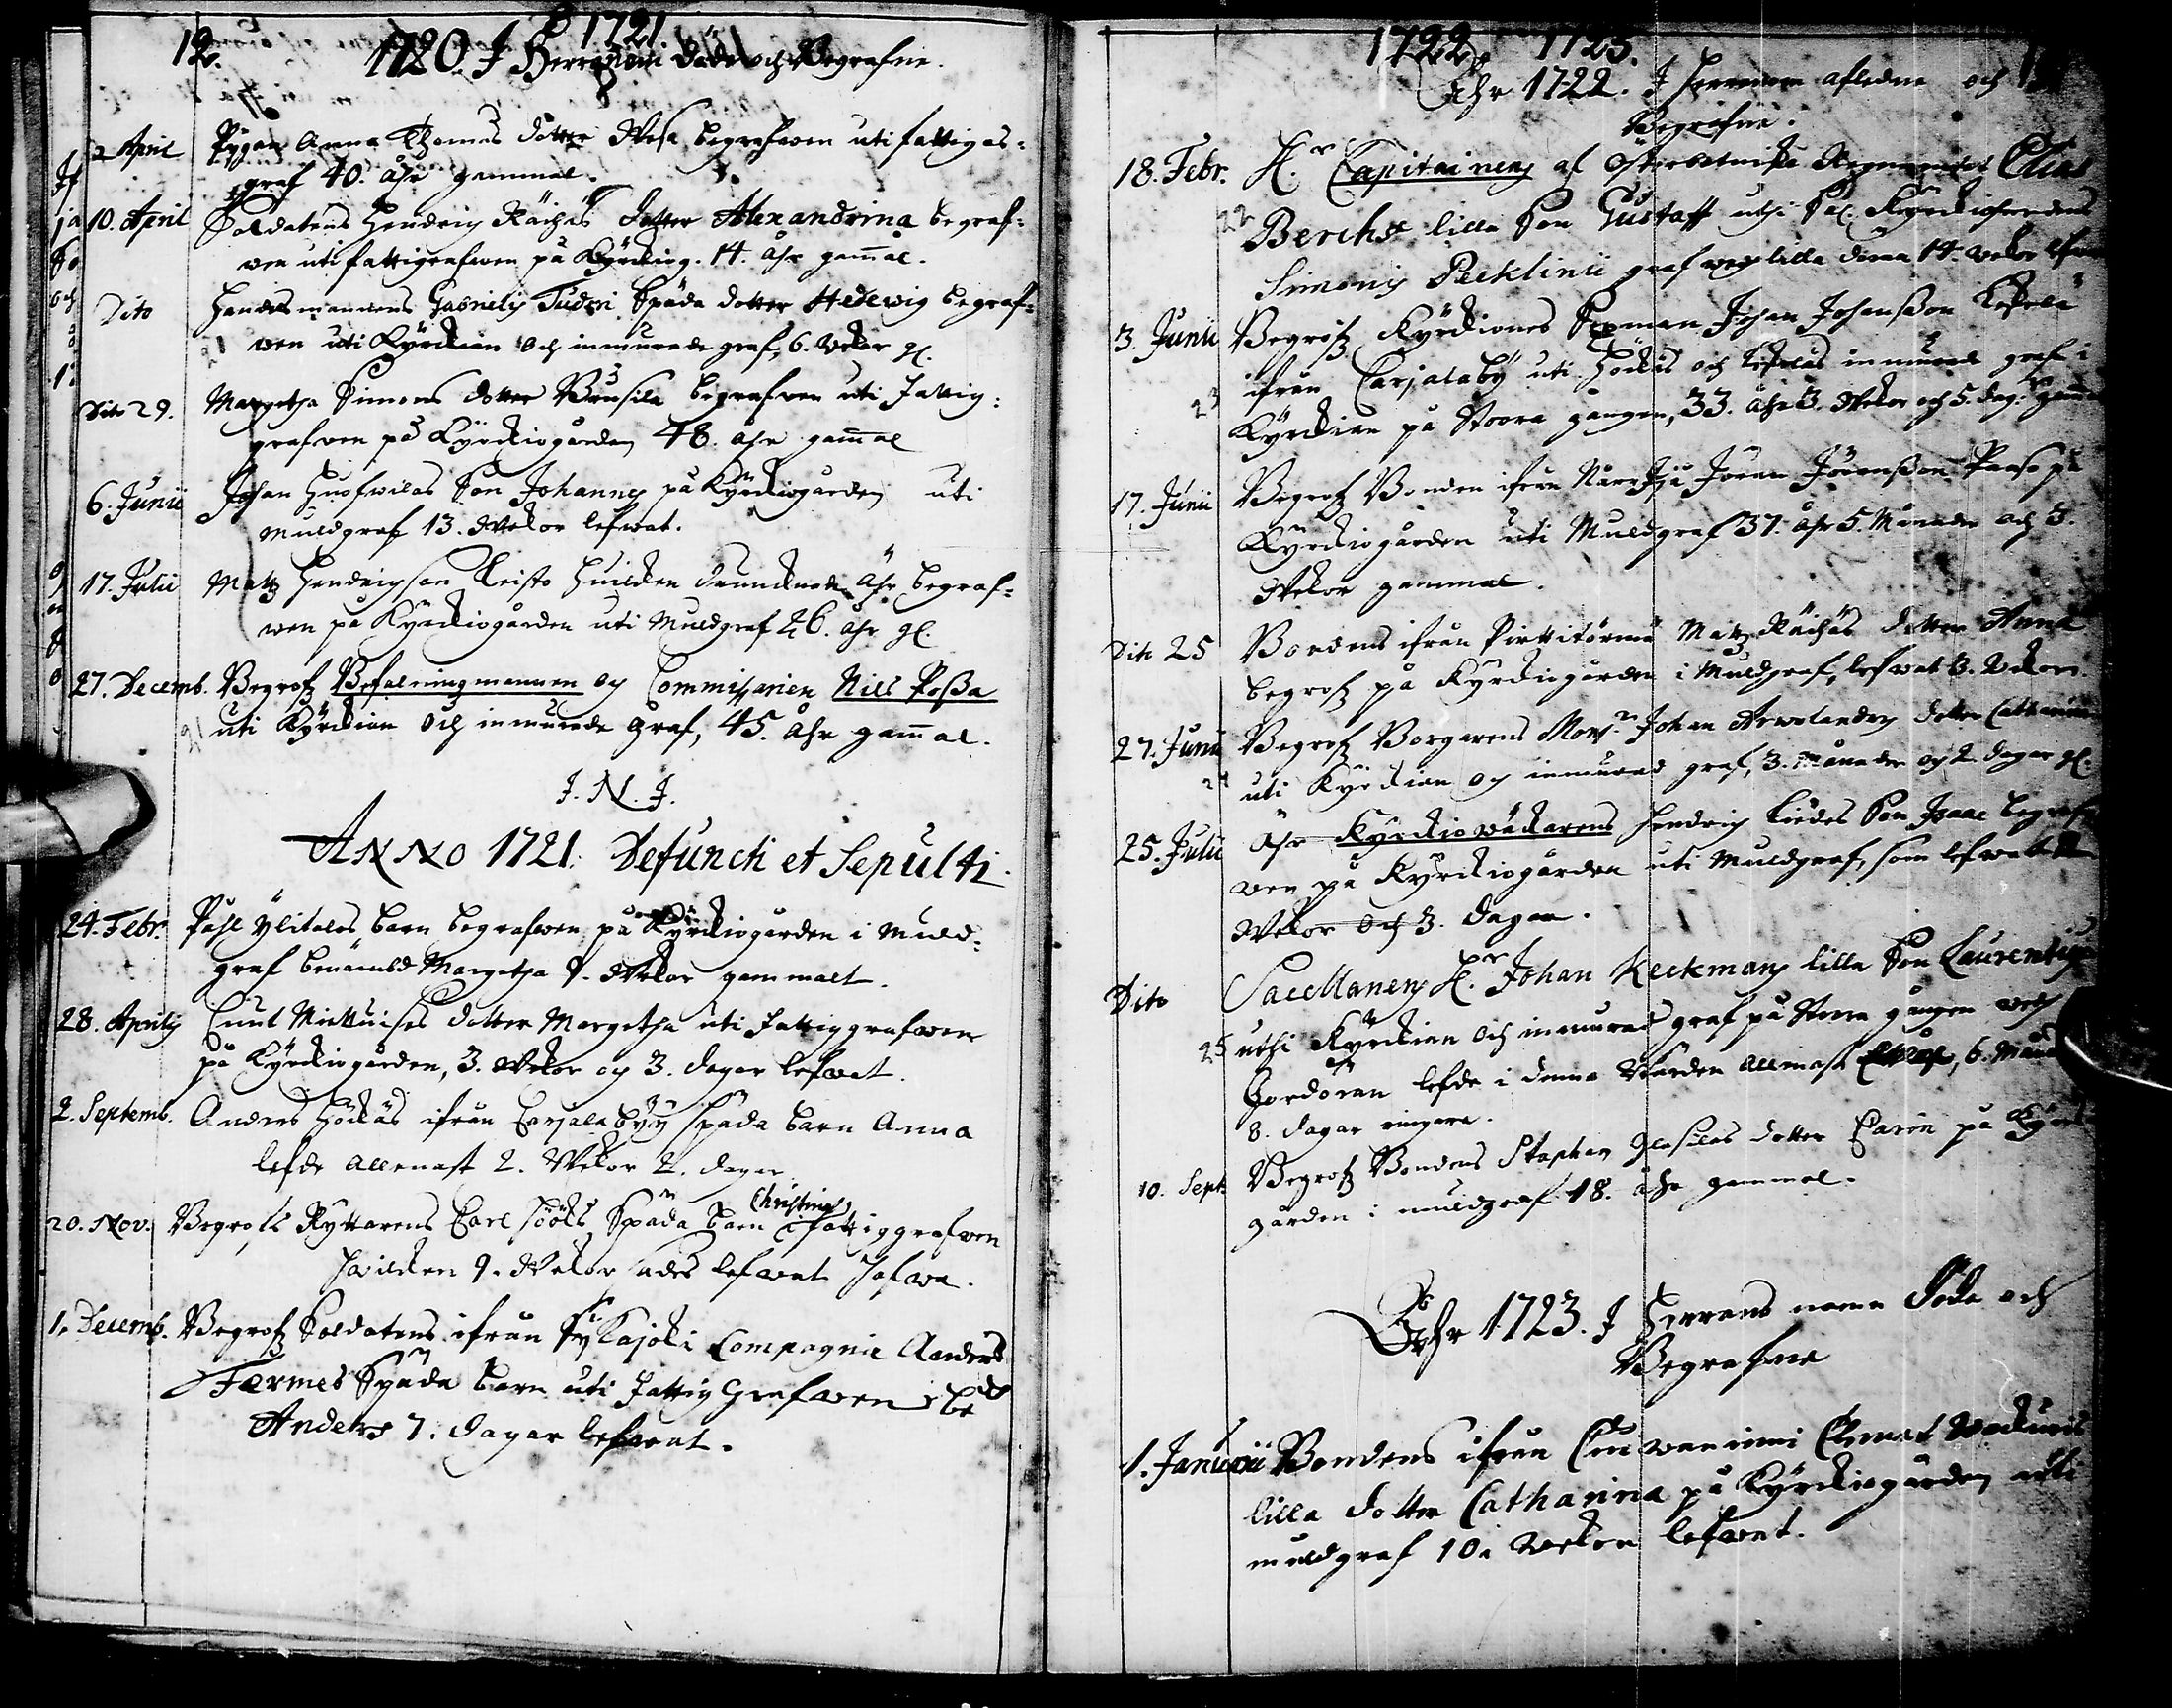 1721
12. 1720. I Herranom döde och Begrafne.
2 April Pygan Anna Thomas dotter Wesa begrafwen uti fattiges-
graf 40. åhr gammal.
10. April Soldatens Hendrich Räihäs dotter Alexandrina begraf-
wen uti fattigrafwen på Kyrckiog. 14. åhr gammal.
Dito Handelsmannens Gabrielis Tuderi Späda dotter Hedewig begraf-
wen uti Kyrckian och inmurade graf, 6. Wekor gl.
Dito 29. Margetha Simons dotter begrafwen uti Fattig-
grafwen på Kyrckiogården 48. åhr gammal
6. Junii Johan Son Johannes på Kyrckiogården uti
muldgraf 13. Wekor lefwat.
17. Julii Matz Hendrichson Leisto hwilcken drunknade åhr begraf-
wen på Kyrckiogården uti Muldgraf 26. åhr gl.
27. Decemb. Begrofz Befalningzmannen och Commissarien Nils Poßa
21 uti Kyrckian och inmurade graf, 45. åhr gammal.
I. N. J.
ANNO 1721. Defuncti et Sepulti.
24. Febr. Påhl Ylitalos barn begrafwen på Kyrckiogården i Muld-
graf benämbd Margetha 9. Wekor gammalt.
28. Aprilis Cnut dotter Margetha uti Fattiggrafwen
på Kyrckiogården, 3. Wekor och 3. dagar lefwat.
2. Septemb. Anders Höckäs ifrån Carjalabyy späda barn Anna
lefde allenast 2. Wekor 2. dagar
Christina
20. Nov. Begrofz Ryttarens Carl Späda barn i fattiggrafwen
hwilcken 9. Wekor lefwat hafwa.
1. Decemb. Begrofz Soldatens ifrån Kajoki Compagnie Anders
Færmes Späda barn uti Fattig Grafwen
Anders 7. dagar lefwat.
1722. 1723.
Åhr 1722. I Herranom afledne och
Begrafne.
18. Febr. H.r Capitainens af Österbotniska Regementet Elias
22 Berchs lilla Son Gustaff uthi Sal. Kyrckioherdens
Simonis Pecklinii graf lilla 14. wekor
3. Junii Begrofz Kyrckiones Sexman Johan Johansson
23 ifrån Carjalaby uti Höckäs och inmurad graf i
Kyrckian på Stora gången, 33. åhr 3. Wekor och 5. dag.
17. Junii Begrofz Bonden ifrån Jöran Jöransson Paaso på
Kyrckiogården uti Muldgraf 37. åhr 5. Månader och 3.
Wekor gammal.
Dito 25 Bondens ifrån Pirttitörmä Matz Räihäs dotter Anna
begrofz på Kyrckiogården i Muldgraf, lefwat 3. Wekor.
27. Junii Begrofz Borgarens Mons.r Johan dotter Catharina
24 uti Kyrckian och inmurad graf, 3. Månader och 2. dagar gl.
25. Julii Åhr Kyrckiowäcktarens Hendrich Liedes Son Isaac begraf-
wen på Kyrckiogården uti Muldgraf, som lefwat
Wekor och 3. dagar.
Dito Sacellanens H.r Johan Keckmans lilla Son Laurentius
25 uthi Kyrckian och inmurad graf på Stora gången
lefde i denna Wärlden allenast 6. Månad
8. dagar ringare.
10. Sept. Begrofz Bondens Staphan dotter Carin på Kyrckio
gården i muldgraf 18. åhr gammal.
Åhr 1723. I Herrans namn Döde och
Begrafne
1. Januarii Bondens ifrån Clemet
lilla dotter Catharina på Kyrckiogården uti
muldgraf 10. wekor lefwat.